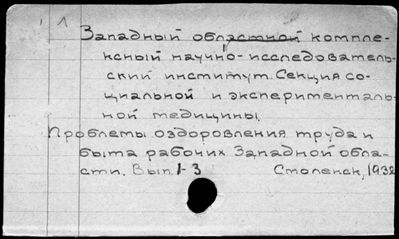 1
Западный областной компле-
ксный научно-исследователь-
ский институт. Секция со-
циальной и эксперименталь-
ной медицины.
Проблемы оздоровления труда и
быта рабочих Западной обла-
сти. Вып. 1-3 Смоленск, 1932